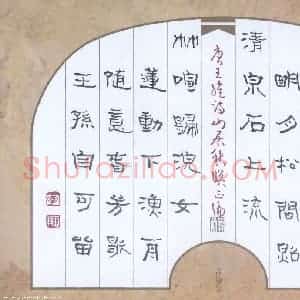 明月松間照
清泉石上流
唐王維詩山居秋暝
竹喧歸浣女
蓮動下漁舟
隨意春芳歇
王孫自可留
Shufaziliao.com